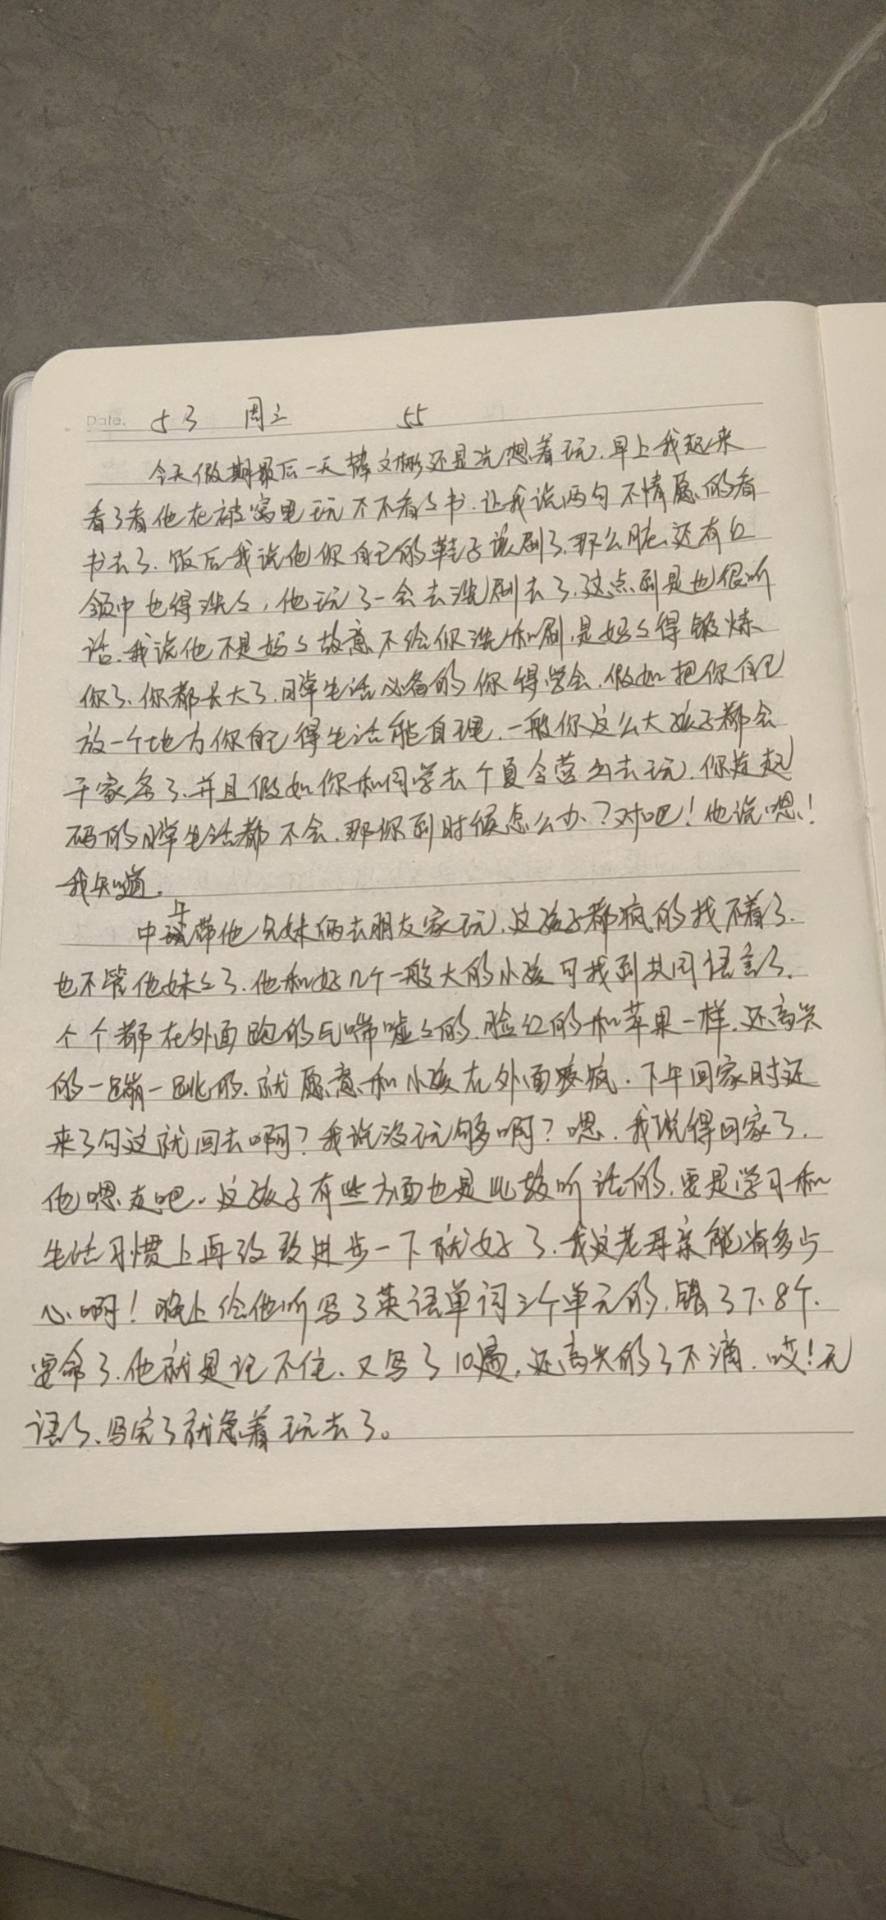 Date. 5.3 周三 55
今天假期最后一天韩文彬还是光想着玩.早上我起来
看了看他在被窝里玩不不看々书.让我说两句不情愿的看
书去了.饭后我说他你自己的鞋子该刷了.那么脏.还有红
领巾也得洗々,他玩了一会去洗刷去了.这点到是也很听
话.我说他不是妈々故意不给你洗和刷,是妈々得锻炼
你了.你都长大了.日常生活必备的你得学会.假如把你自己
放一个地方你自己得生活能自理.一般你这么大孩子都会
干家务了.并且假如你和同学去个夏令营出去玩.你连起
码的日常生活都不会.那你到时候怎么办?对吧!他说嗯!
我知道.
中午带他兄妹俩去朋友家玩.这孩子都疯的找不着了.
也不管他妹々了.他和好几个一般大的小孩可找到共同语言了.
个个都在外面跑的气喘嘘々的.脸红的和苹果一样.还高兴
的一蹦一跳的.就愿意和小孩在外面疯.下午回家时还
来了句这就回去啊?我说没玩够啊?嗯.我说得回家了.
他嗯走吧.这孩子有些方面也是比较听话的.要是学习和
生活习惯上再改致进步一下就好了.我这老母亲能省多少
心啊!晚上给他听写了英语单词三个单元的.错了7.8个.
要命了.他就是记不住.又写了10遍.还高兴的了不滴.哎!无
语了.写完了就急着玩去了。